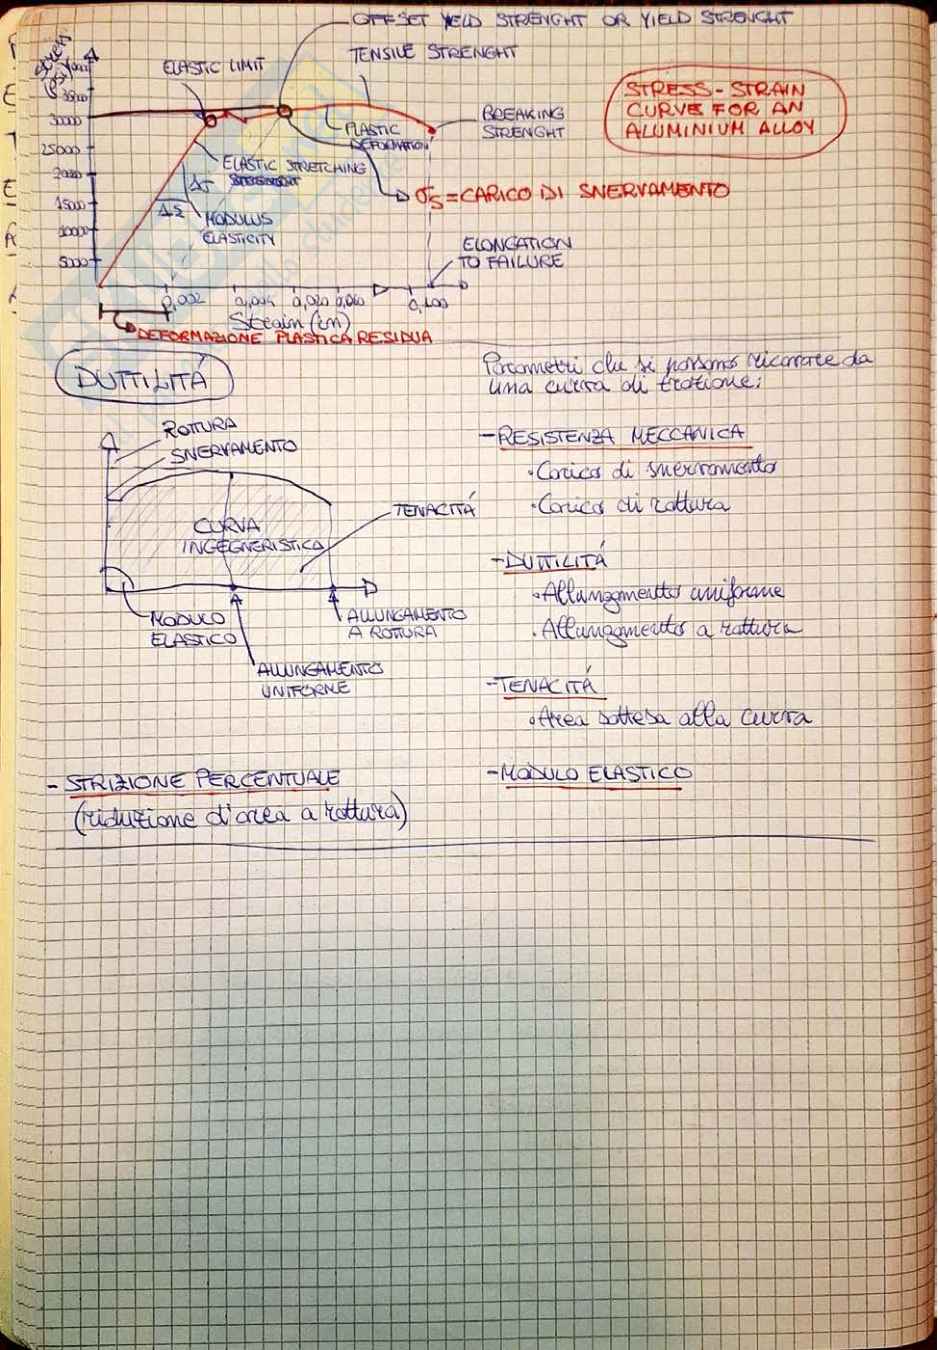 OFFSET YIELD STRENGHT OR YIELD STRENGHT
TENSILE STRENGHT
ELASTIC LIMIT
Stress
(Psi)
STRESS-STRAIN
CURVE FOR AN
ALUMINIUM ALLOY
3500
30000
25000
1500
10000
5000
BREAKING
STRENGHT
PLASTIC
DEFORMATION
ELASTIC STRETCHING
Δσ
σs = CARICO DI SNERVAMENTO
ΔΣ
MODULUS
ELASTICITY
ELONGATION
TO FAILURE
0,002
0,004
0,020
0,100
Strain (in)
DEFORMAZIONE PLASTICA RESIDUA
DUTTILITÁ
Parametri che si possono ricavare da
una curva di trazione:
ROTTURA
SNERVAMENTO
CURVA
INGEGNERISTICA
TENACITÁ
MODULO
ELASTICO
ALLUNGAMENTO
A ROTTURA
ALLUNGAMENTO
UNIFORME
- RESISTENZA MECCANICA
• Carico di snervamento
• Carico di rottura
- DUTTILITÁ
• Allungamento uniforme
• Allungamento a rottura
- TENACITÁ
• Area sottesa alla curva
- MODULO ELASTICO
- STRIZIONE PERCENTUALE
(riduzione d'area a rottura)